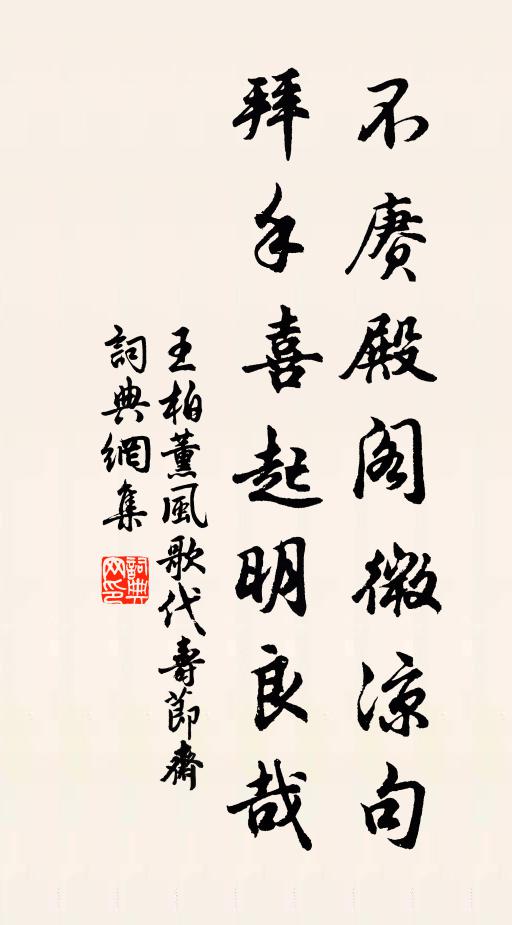 不赓殿阁微凉句
拜手喜起明良哉
王柏薰風歌代壽節齋
詞典網集
詞典网印